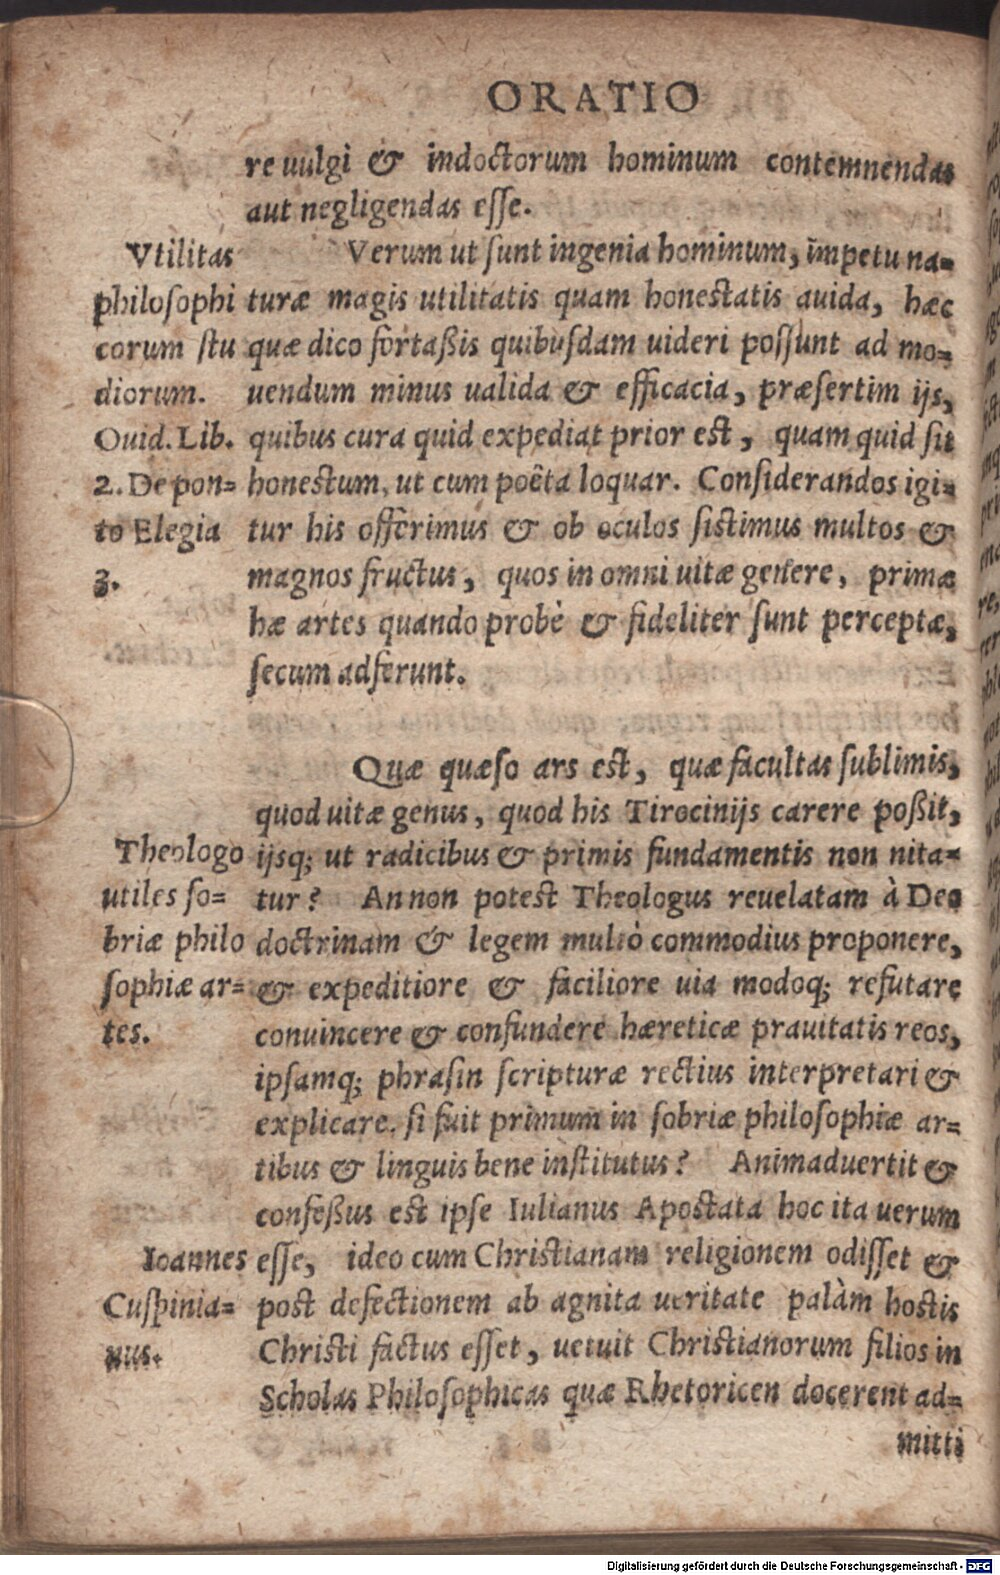 ORATIO
re uulgi & indoctorum hominum contemnendas
aut negligendas esse.
Vtilitas
philosophi
corum stu
diorum.
Ouid. Lib.
2. De pon=
to Elegia
3.
Verum ut sunt ingenia hominum, impetu na=
turæ magis utilitatis quam honestatis auida, hæc
quæ dico fortaßis quibusdam uideri possunt ad mo=
uendum minus ualida & efficacia, præsertim ijs,
quibus cura quid expediat prior est, quam quid sit
honestum, ut cum poêta loquar. Considerandos igi=
tur his offerimus & ob oculos sistimus multos &
magnos fructus, quos in omni uitæ genere, primæ
hæ artes quando probè & fideliter sunt perceptæ,
secum adferunt.
Quæ quæso ars est, quæ facultas sublimis,
quod uitæ genus, quod his Tirocinijs carere poßit,
ijsq; ut radicibus & primis fundamentis non nita=
tur? An non potest Theologus reuelatam à Deo
doctrinam & legem multò commodius proponere,
& expeditiore & faciliore uia modoq; refutare
conuincere & confundere hæreticæ prauitatis reos,
ipsamq; phrasin scripturæ rectius interpretari &
explicare. si fuit primum in sobriæ philosophiæ ar=
tibus & linguis bene institutus? Animaduertit &
confeßus est ipse Iulianus Apostata hoc ita uerum
esse, ideo cum Christianam religionem odisset &
post defectionem ab agnita ueritate palàm hostis
Christi factus esset, uetuit Christianorum filios in
Scholas Philosophicas quæ Rhetoricen docerent ad=
mitti
Theologo
utiles so=
briæ philo
sophiæ ar=
tes.
Ioannes
Cuspinia=
nus.
Digitalisierung gefördert durch die Deutsche Forschungsgemeinschaft - DFG